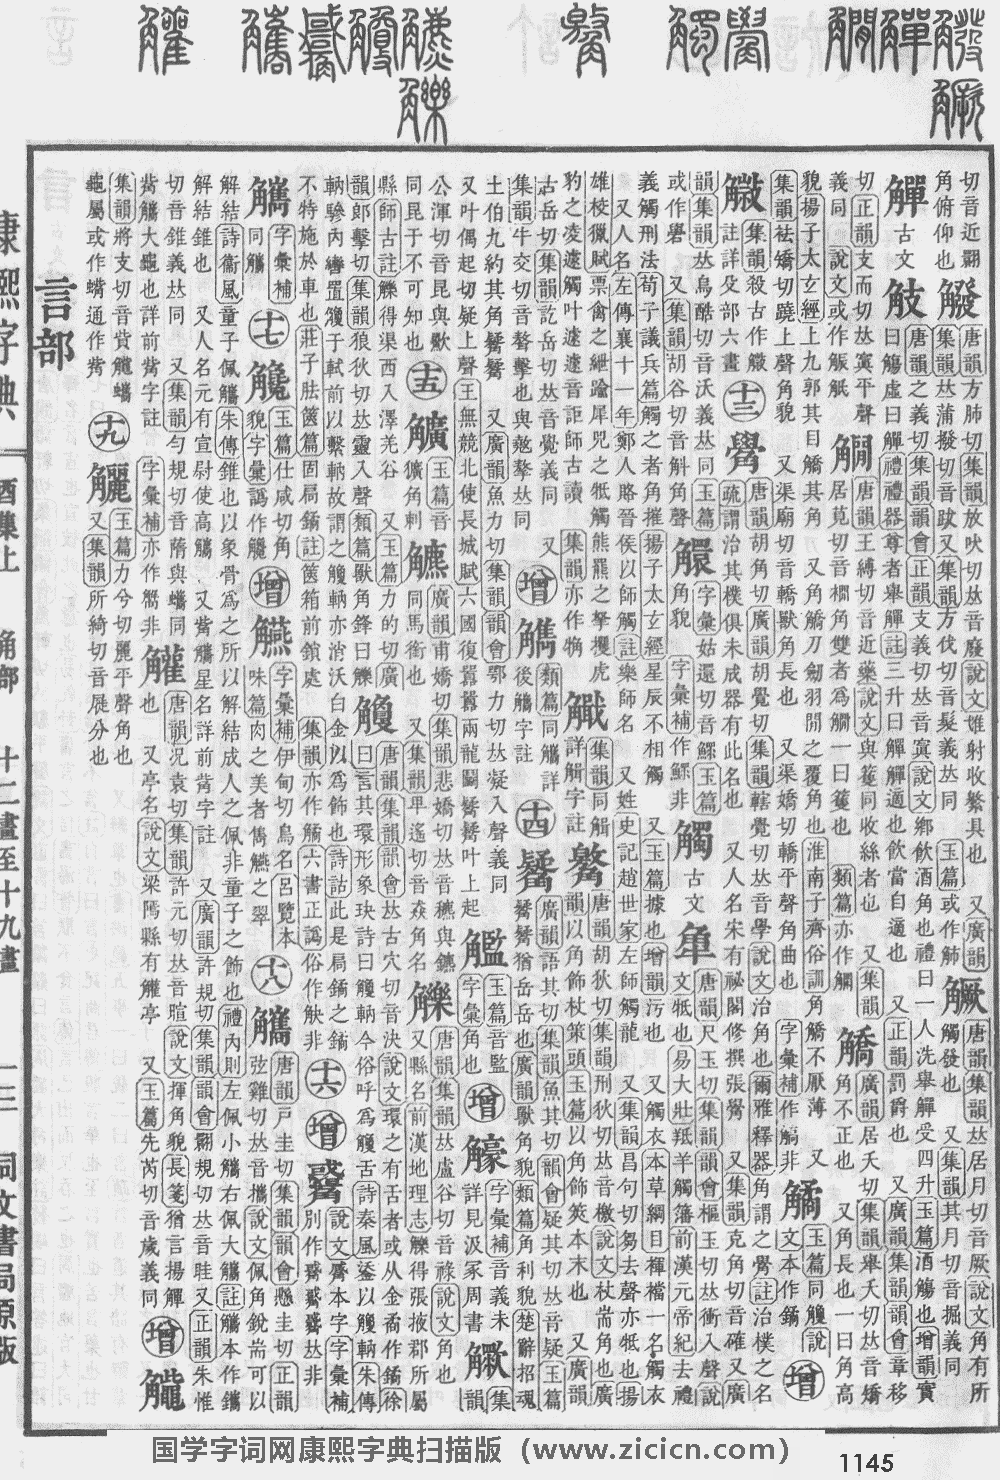 切音近翽角俯仰也 唐韻方肺切集韻放吠切𠀤音廢說文雉射收繁具也 又廣韻集韻𠀤蒲撥切音跋又集韻方伐切音髮義𠀤同 玉篇或作 唐韻集韻𠀤居月切音厥說文角有所觸發也 又集韻其月切音掘義同
觶 古文觗 唐韻之義切集韻韻會正韻支義切𠀤音寘說文鄉飲酒角也禮曰一人洗舉觶觶受四升玉篇酒觴也增韻實曰觴虛曰觶禮禮器尊者舉觶註三升曰觶觶適也飲當自適也 又正韻罰爵也 又廣韻集韻韻會章移
切正韻支而切𠀤寘平聲義同說文或作觗 觸 居莧切音襉角雙者爲 一曰篗也 類篇亦作 唐韻王縛切音近藥說文與篗同收絲者也 又集韻 觿 廣韻居夭切集韻舉夭切𠀤音矯角不正也 又角長也一曰角高
貌揚子太玄經上九郭其目觿其角 又渠廟切音轎獸角長也 又渠嬌切轎平聲角曲也 字彙補作 非
集韻祛矯切蹺上聲角貌 又角 刀劒羽閒之覆角也淮南子齊俗訓角 不厭薄 又 玉篇同觼說文本作鐍 增
集韻殺古作 註詳殳部六畫 十三 觷 唐韻胡角切廣韻胡覺切集韻轄覺切𠀤音學說文治角也爾雅釋器角謂之觷註治樸之名疏謂治其樸俱未成器有此名也 又人名宋有祕閣修撰張觷 又集韻克角切音確又廣
韻集韻𠀤烏酷切音沃義𠀤同玉篇或作 又集韻胡谷切音斛角聲 角貌 字彙姑還切音鰥玉篇 字彙補作 非 觸 古文𧢻 唐韻尺玉切集韻韻會樞玉切𠀤衝入聲說文牴也易大壯羝羊觸藩前漢元帝紀去禮
義觸刑法荀子議兵篇觸之者角摧揚子太玄經星辰不相觸 又玉篇據也增韻污也 又觸衣本草綱目褌襠一名觸衣
又人名左傳襄十一年鄭人賂晉侯以師觸註樂師名 又姓史記趙世家左師觸龍 又集韻昌句切芻去聲亦牴也揚
雄校獵賦票禽之紲踰犀兕之牴觸熊羆之拏攫虎豹之凌遽觸叶遽遽音詎師古讀 集韻亦作 集韻同 詳 字註 唐韻胡狄切集韻刑狄切𠀤音檄說文杖耑角也廣韻以角飾杖策頭玉篇以角飾筴本末也 又廣韻
古岳切集韻訖岳切𠀤音覺義同 又集韻牛交切音磝擊也與 𠀤同 增 類篇同觿詳後觿字註 十四 廣韻語其切集韻魚其切韻會疑其切𠀤音疑玉篇 猶岳岳也廣韻獸角貌類篇角利貌楚辭招魂
土伯九約其角觺觺 又廣韻魚力切集韻韻會鄂力切𠀤疑入聲義同
又叶偶起切疑上聲王無競北使長城賦六國復囂囂兩龍鬬觺觺叶上起 玉篇音監字彙角也 增 字彙補音義未詳見汲冢周書 韻集
公渾切音昆與 歟同昆于不可知也 十五 玉篇音 角 廣韻甫嬌切集韻悲嬌切𠀤音穮與鑣同馬銜也 又集韻卑遙切音猋角名 唐韻集韻𠀤盧谷切音祿說文角也
縣師古註觻得渠西入澤羌谷 又玉篇力的切廣韻郎擊切集韻狼狄切𠀤靈入聲類篇獸角鋒曰觻 又縣名前漢地理志觻得張掖郡所屬
觼 唐韻集韻韻會𠀤古穴切音決說文環之有舌者或从金矞作鐍徐曰言其環形象玦詩曰觼軜今俗呼爲觼舌詩秦風鋈以觼軜朱傳
軜驂內轡置觼于軾前以繫軜故謂之觼軜亦消沃白金以爲飾也詩詁此是扃鐍之鐍
不特施於車也莊子胠篋篇固扃鐍註篋箱前鎖處 集韻亦作 六書正譌俗作觖非 十六 增 說文 本字字彙補別作 𠀤非
字彙補同觿 十七 玉篇仕咸切角貌字彙譌作 增 觾 字彙補伊甸切鳥名呂覽本味篇肉之美者雋觾之翠 十八 觿 唐韻戸圭切集韻韻會懸圭切正韻弦雞切𠀤音攜說文佩角銳耑可以
解結詩衞風童子佩觿朱傳錐也以象骨爲之所以解結成人之佩非童子之飾也禮內則左佩小觿右佩大觿註觿本作鑴
解結錐也 又人名元有宣尉使高觿 又觜觿星名詳前觜字註 又廣韻許規切集韻韻會翾規切𠀤音眭又正韻朱惟
切音錐義𠀤同 又集韻勻規切音蘤與蠵同觜觿大龜也詳前觜字註 字彙補亦作 非也 唐韻況袁切集韻許元切𠀤音暄說文揮角貌長箋猶言揚觶 又亭名說文梁隝縣有 亭 又玉篇先芮切音歲義同 增
集韻將支切音貲 蠵龜屬或作蟕通作觜 十九 玉篇力兮切麗平聲角也 又集韻所綺切音屣分也
言部
康熙字典 酉集上 角部 十二畫至十九畫 一三 同文書局原版
国学字词网康熙字典扫描版（www.zicicn.com）
1145